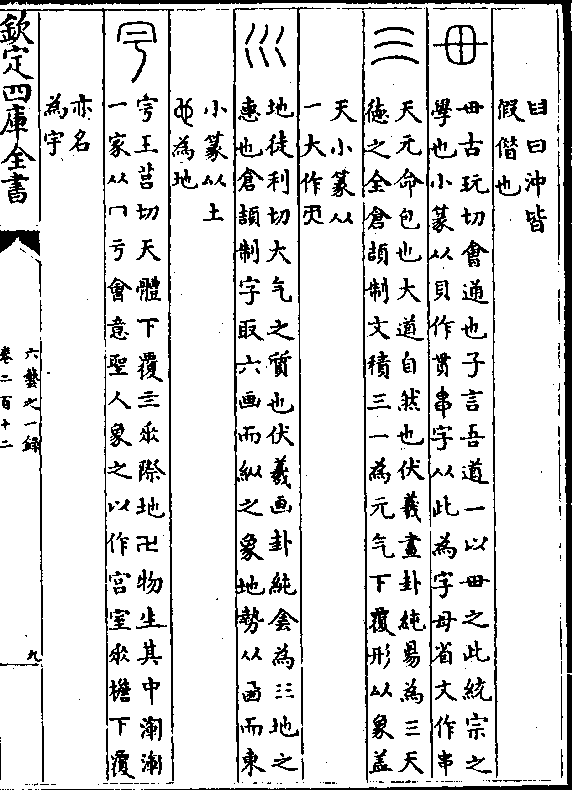 臼曰沖皆
假借也
毌古玩切會通也子言吾道一以毌之此統宗之
學也小篆从貝作貫串字从此為字母省文作串
三
天元命包也大道自然也伏羲畫卦純昜為三天
德之全倉頡制文積三一為元气下覆形以象盖
天小篆从
一大作兲
地徒利切大气之質也伏羲画卦純侌為☷地之
惠也倉頡制字取六画而縱之象地勢从卥而東
小篆从土
為地
宇王莒切天體下覆三垂際地卍物生其中
一家从冖亏會意聖人象之以作宫室垂檐下覆
亦名
為宇
欽定四庫全書
六藝之一録
卷二百十二
九